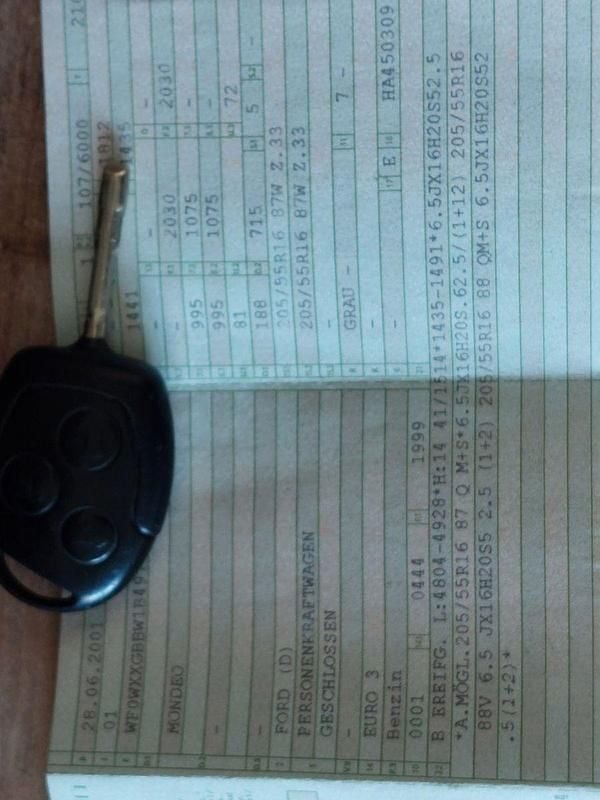 28.06.2001 1 107/6000
01 1812
1441 1435
- - -
MONDEO - 2030 2030
995 1075 -
- 995 1075 -
81 72
- 188 715 5 -
FORD (D) 205/55R16 87W Z.33
PERSONENKRAFTWAGEN 205/55R16 87W Z.33
GESCHLOSSEN
- GRAU - 7 -
EURO 3 -
Benzin - E HA450309
0001 0444 1999
B EREIFG. L:4804-4928*H:14 41/1514*1435-1491*6.5JX16H2OS52.5
*A.MÖGL.205/55R16 87 Q M+S*6.5JX16H2OS.62.5/(1+12) 205/55R16
88V 6.5 JX16H2OS5 2.5 (1+2) 205/55R16 88 QM+S 6.5JX16H2OS52
.5(1+2)*